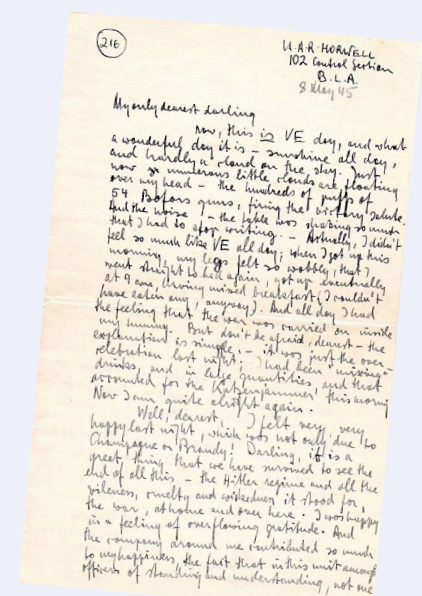 216
H.A.R. HORWELL
102 Control Section
B.L.A.
8 May 45
My only dearest darling
now, this is VE day, and what
a wonderful day it is – sunshine all day,
and hardly a cloud on the sky. Just
now numerous little clouds are floating
over my head – the hundreds of puffs of
54 Bofors guns, firing the victory salute.
And the noise – the table was shaking so much
that I had to stop writing. – Actually, I didn't
feel so much like VE all day; when I got up this
morning, my legs felt so wobbly, that I
went straight to bed again, got up eventually
at 9 am, having missed breakfast (I couldn't
have eaten any, anyway). And all day I had
the feeling that the war was carried on inside
my tummy. But don't be afraid, dearest – the
explanation is simple, – it was just the over
celebration last night; I had been "mixing"
drinks, and in large quantities, and that
accounted for the Katzenjammer this morning
Now I am quite alright again.
Well, dearest, I felt very, very
happy last night, which was not only due to
Champagne or Brandy! Darling, it is a
great thing that we have survived to see the
end of all this – the Hitler regime and all the
vileness, cruelty and wickedness it stood for,
the war, at home and over here. I was happy
in a feeling of overflowing gratitude. And
the company around me contributed so much
to my happiness, the fact that in this unit among
officers of standing and understanding, not one